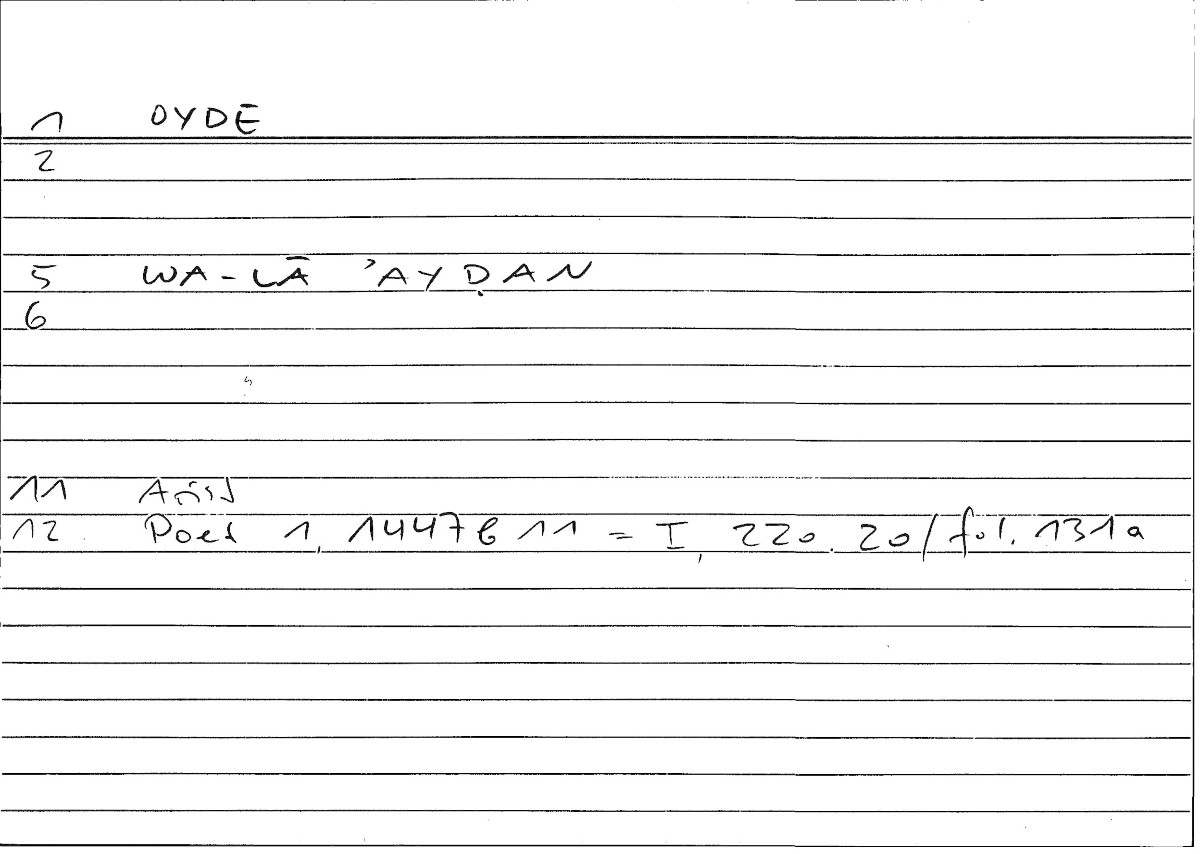 1 OYDE
2
5 WA-LĀ ʾAYḌAN
6
11 Arist
12 Poet 1, 1447b11 = I, 220.20/fol. 131a